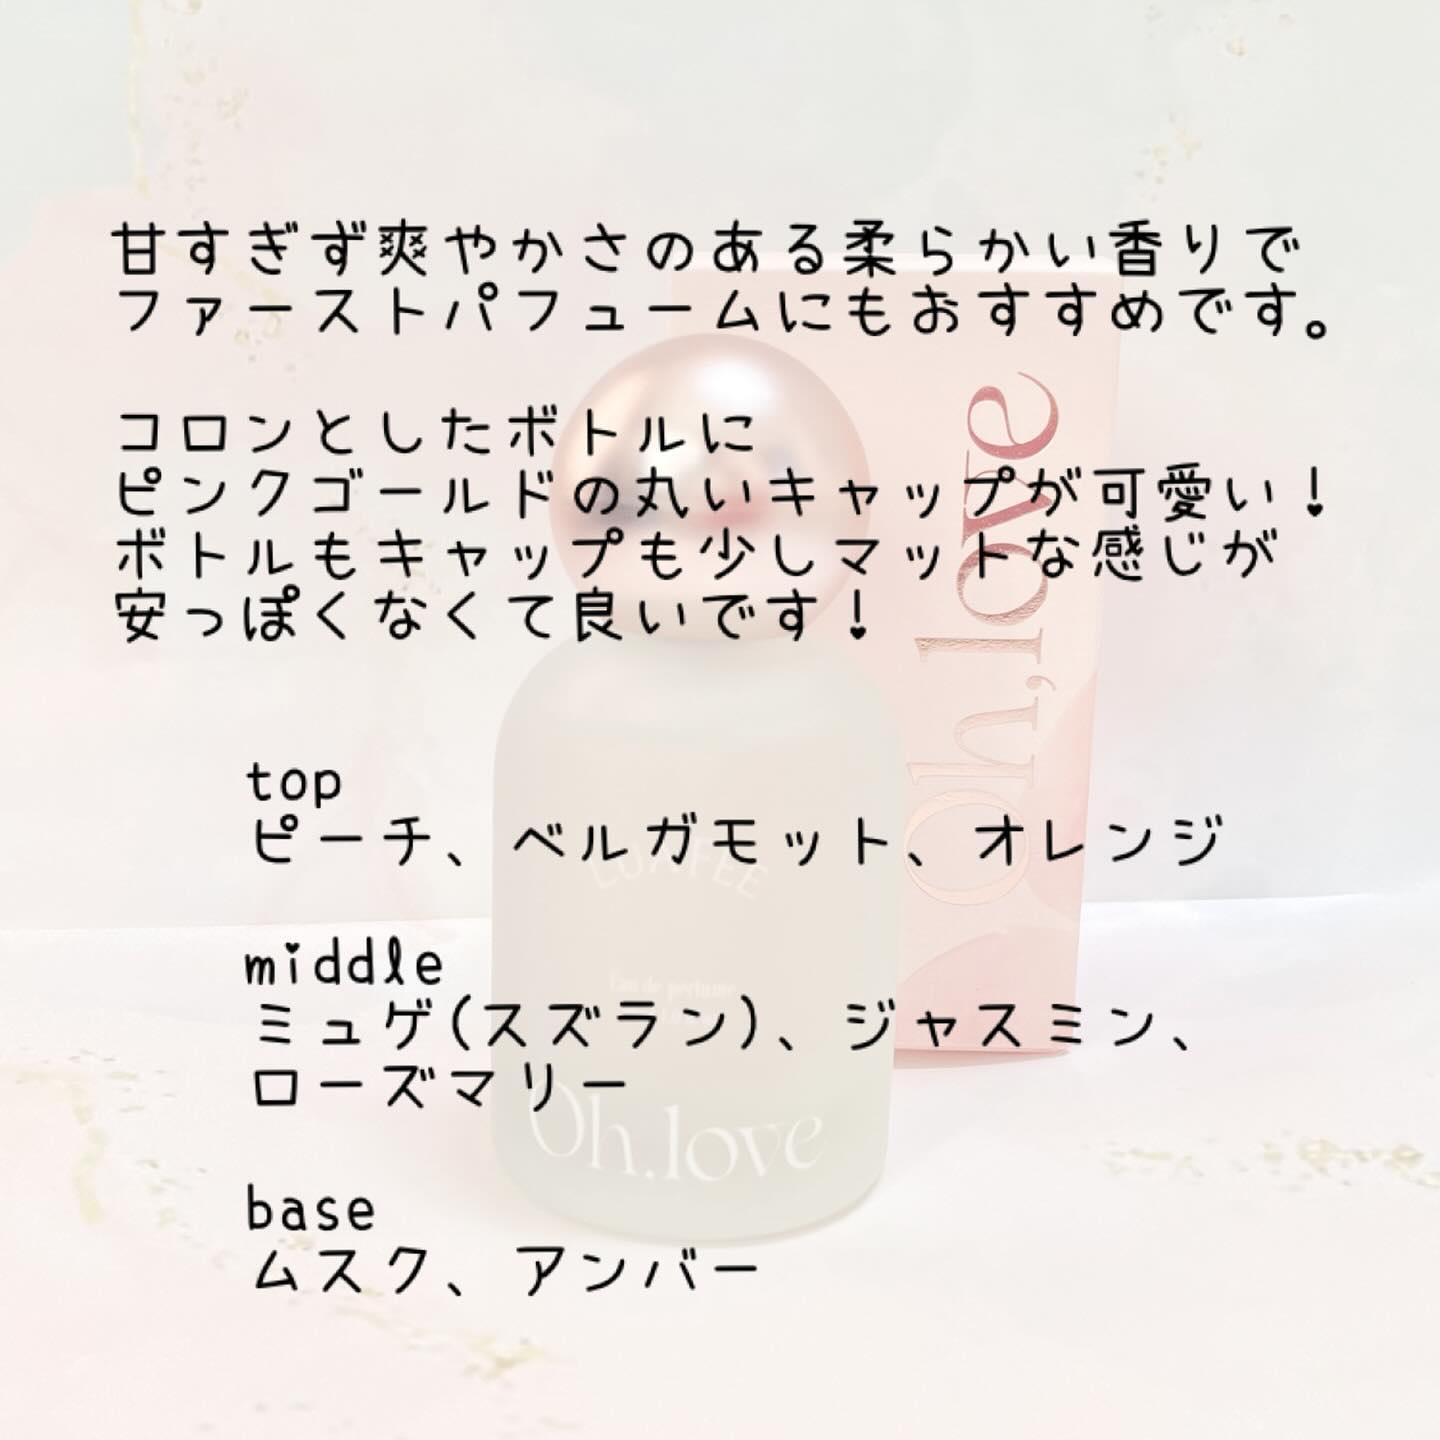 甘すぎず爽やかさのある柔らかい香りで
ファーストパフュームにもおすすめです。
コロンとしたボトルに
ピンクゴールドの丸いキャップが可愛い！
ボトルもキャップも少しマットな感じが
安っぽくなくて良いです！
top
ピーチ、ベルガモット、オレンジ
middle
ミュゲ(スズラン)、ジャスミン、
ローズマリー
base
ムスク、アンバー
Oh, love
Eau de perfume
Oh. love